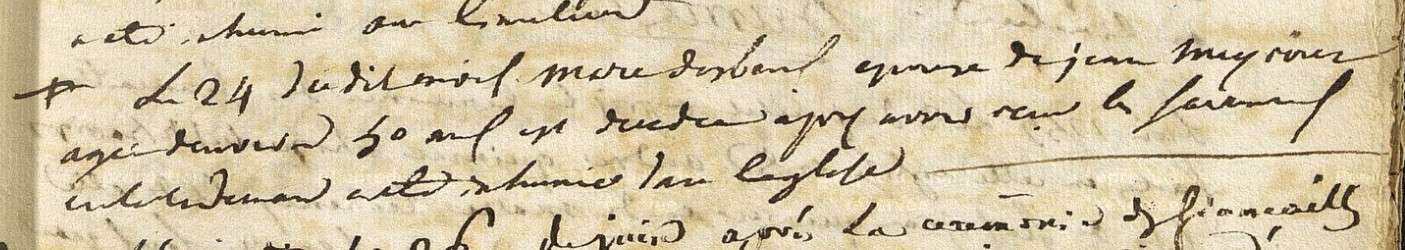 a eté inhumé au simetiere
Le 24 du dit mois marie desbans epouse de jean
agée denviron 50 ans est decedee apres avoir recu les sacremens
et le lendemain a eté inhumée dans leglise
de juin après la ceremonie des fiançailles